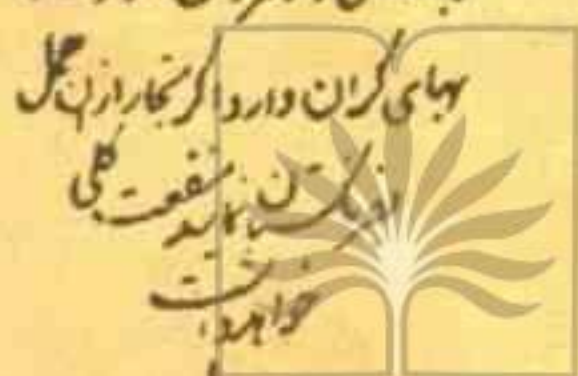 بهای گران دارد اگر تجار ازان حمل
بفرنگستان نمایند منفعت کلی
خواهد داشت